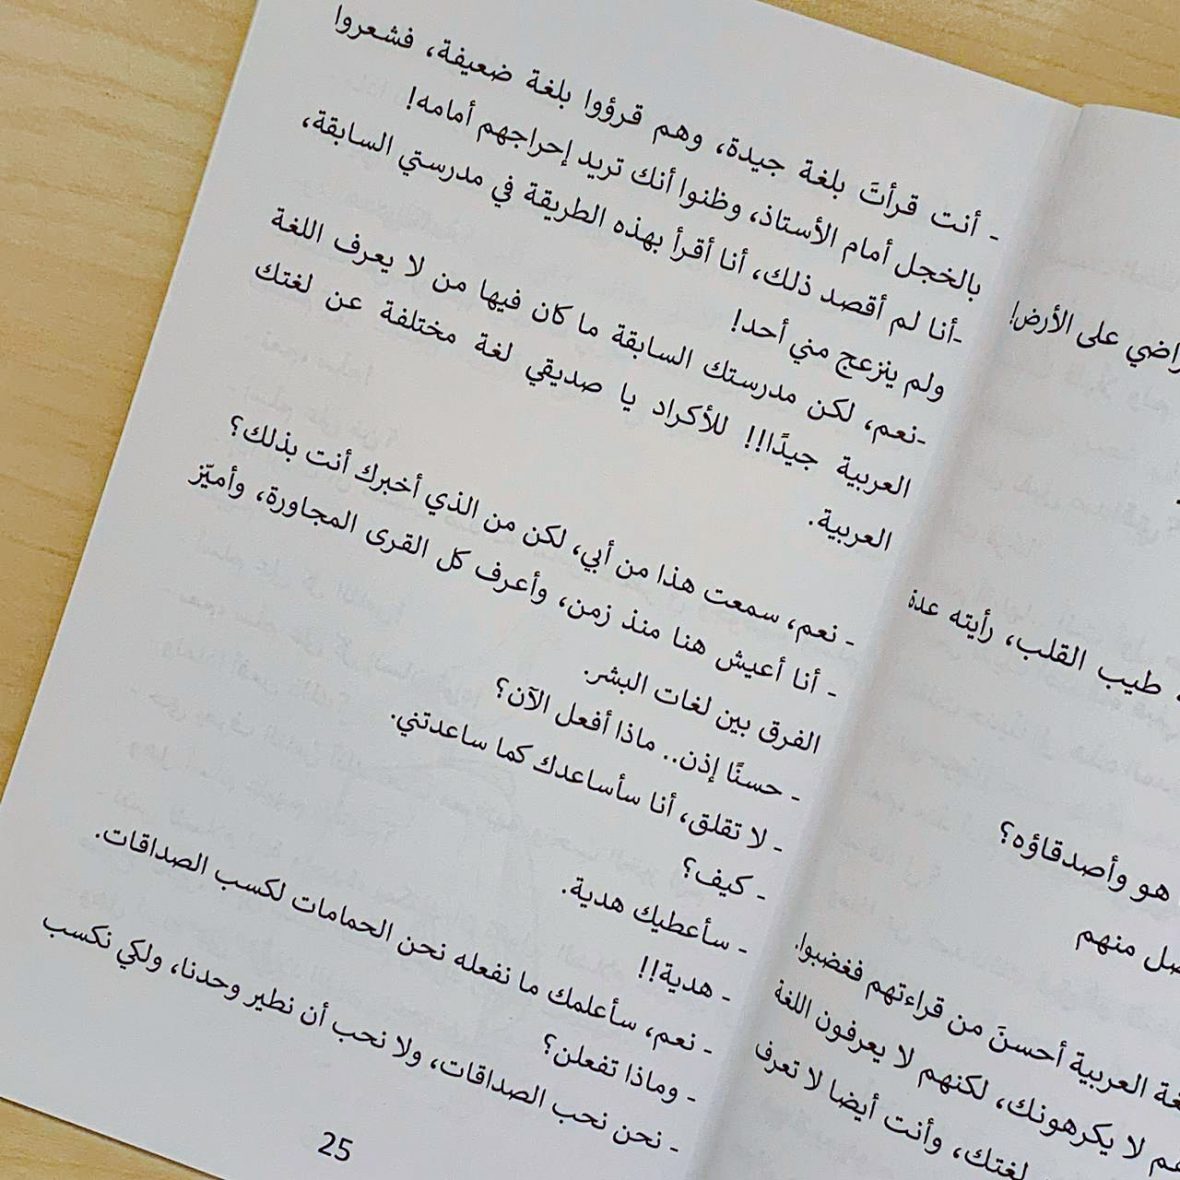 راضي على الأرض!
طيب القلب، رأيته عدة
هو وأصدقاؤه؟
منهم
العربية أحسنَ من قراءتهم فغضبوا.
لا يكرهونك، لكنهم لا يعرفون اللغة
لغتك، وأنت أيضا لا تعرف
- أنت قرأتَ بلغة جيدة، وهم قرؤوا بلغة ضعيفة، فشعروا
بالخجل أمام الأستاذ، وظنوا أنك تريد إحراجهم أمامه!
-أنا لم أقصد ذلك، أنا أقرأ بهذه الطريقة في مدرستي السابقة،
ولم ينزعج مني أحد!
-نعم، لكن مدرستك السابقة ما كان فيها من لا يعرف اللغة
العربية جيدًا!! للأكراد يا صديقي لغة مختلفة عن لغتك
العربية.
- نعم، سمعت هذا من أبي، لكن من الذي أخبرك أنت بذلك؟
- أنا أعيش هنا منذ زمن، وأعرف كل القرى المجاورة، وأميّز
الفرق بين لغات البشر.
- حسنًا إذن.. ماذا أفعل الآن؟
- لا تقلق، أنا سأساعدك كما ساعدتني.
- كيف؟
- سأعطيك هدية.
- هدية!!
- نعم، سأعلمك ما نفعله نحن الحمامات لكسب الصداقات.
- وماذا تفعلن؟
- نحن نحب الصداقات، ولا نحب أن نطير وحدنا، ولكي نكسب
25